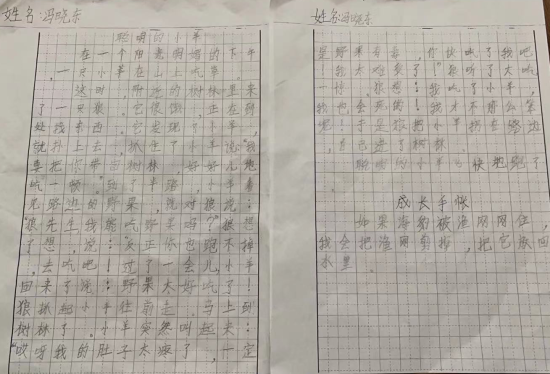 姓名:冯晓东
聪明的小羊
在一个阳光明媚的下午
,一只小羊在山上吃草。
这时,附近的树林里来
了一只狼。它很饿,正在到
处找东西。它发现了小羊,
就扑上去,抓住了小羊说:“我
要把你带回树林,好好儿地
吃一顿。”到了半路,小羊看
见路边的野果,就对狼说:
“狼先生我能吃野果吗?”狼想
了想,说:“反正你也跑不掉
,去吃吧!过了一会儿小羊
回来了说:野果太好吃了!
狼抓起小羊往前走。马上到
树林了。小羊突然叫起来:
“哎呀我的肚子太疼了,一定
姓名:冯晓东
是野果有毒,你快吃了我吧
!我太难受了!”狼听了大吃
一惊,狼想:我吃了小羊,
我也会死的!我才不那么笨
呢!于是狼把小羊扔在路边
,自己进了树林
聪明的小羊飞快地跑了
成长手帐
如果海豹被渔网网住,
我会把渔网剪掉,把它放回
水里。